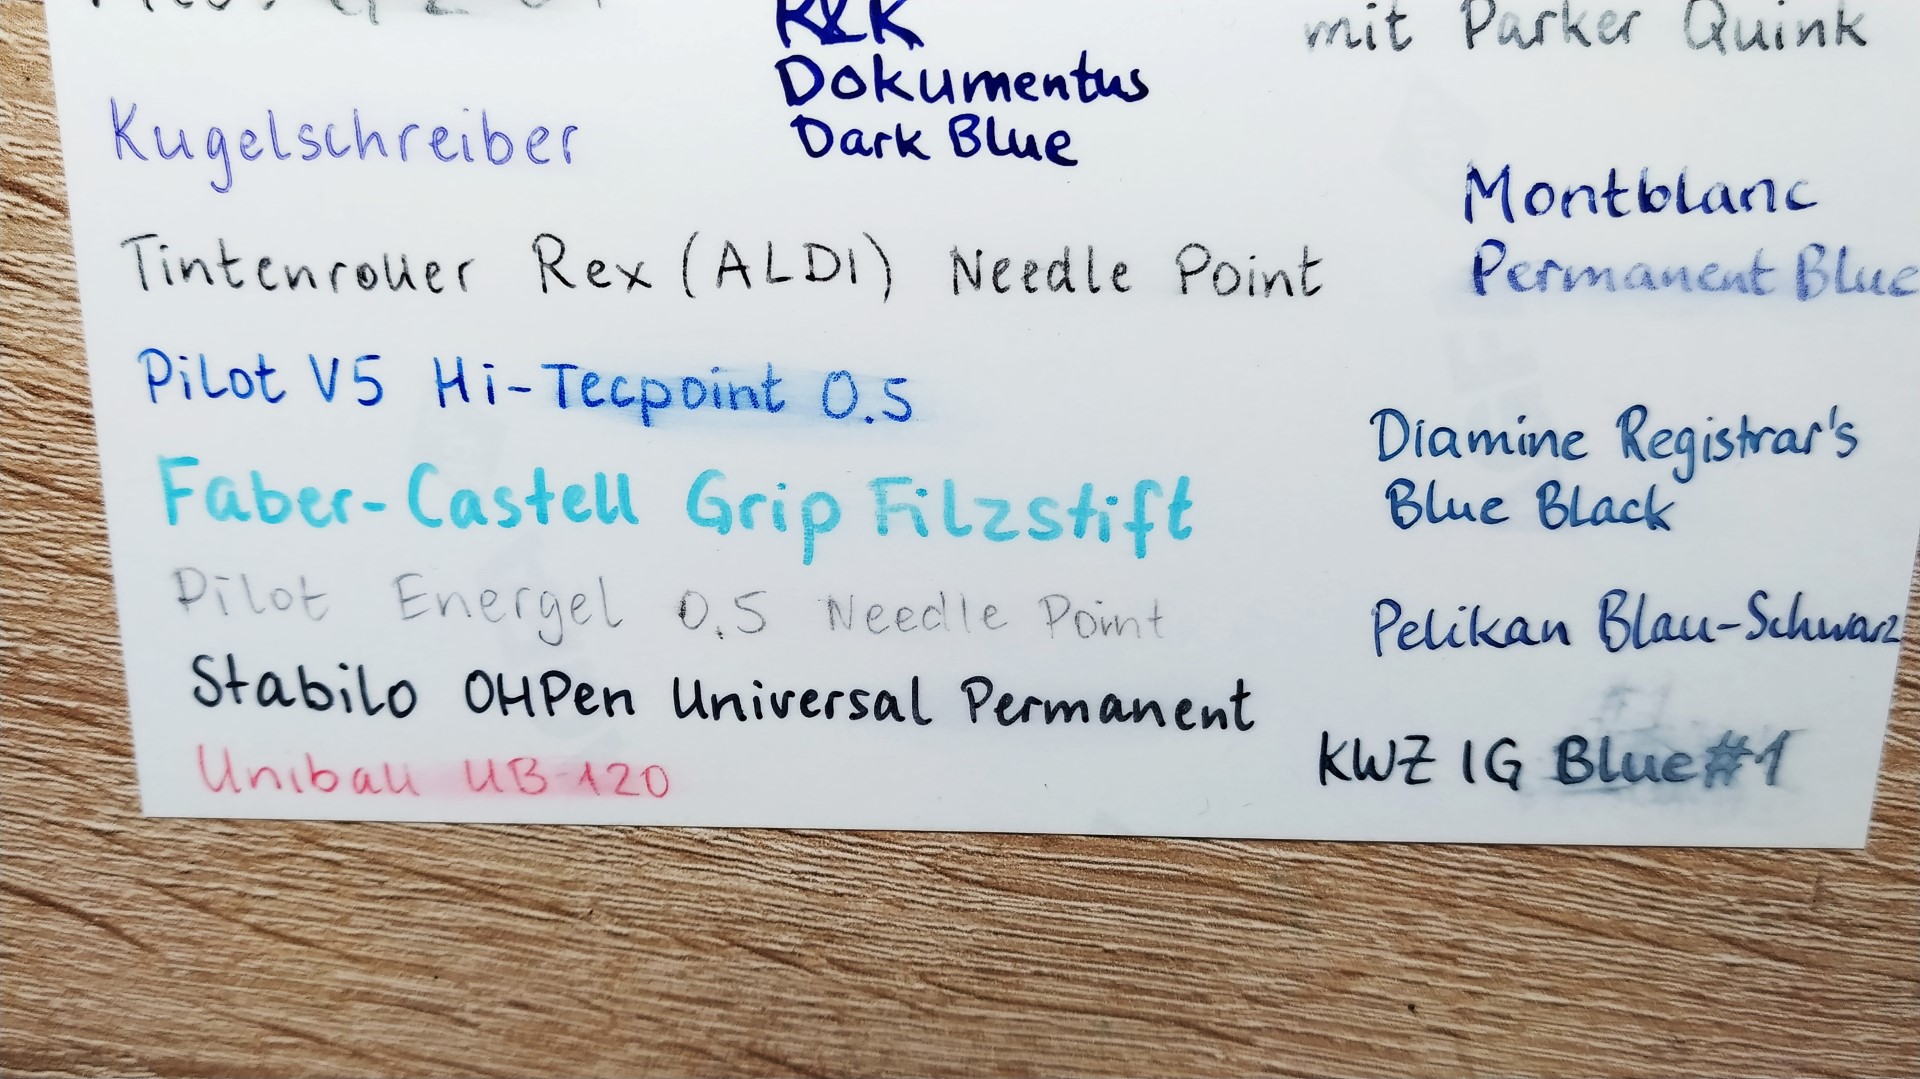 mit Parker Quink
R&K
Dokumentus
Dark Blue
Kugelschreiber
Montblanc
Permanent Blue
Tintenroller Rex (ALDI) Needle Point
Pilot V5 Hi-Tecpoint 0.5
Diamine Registrar's
Blue Black
Faber-Castell Grip Filzstift
Pilot Energel 0,5 Needle Point
Pelikan Blau-Schwarz
Stabilo OHPen Universal Permanent
KWZ IG Blue #1
Uniball UB-120